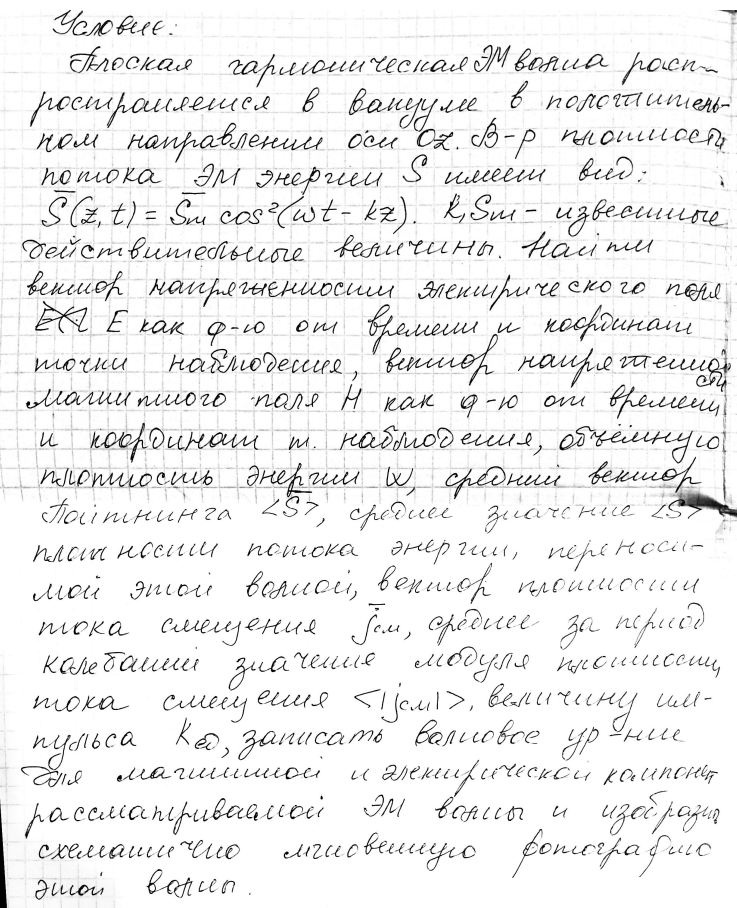 Условие:
Плоская гармоническая ЭМ волна расп-
ространяется в вакууме в положитель-
ном направлении оси Oz. В-р плотности
потока ЭМ энергии S имеет вид:
S̅(z,t) = S̅m cos²(ωt - kz). k, Sm - известные
действительные величины. Найти
вектор напряженности электрического поля
E как ф-ю от времени и координат
точки наблюдения, вектор напряженности
магнитного поля H как ф-ю от времени
и координат т. наблюдения, объёмную
плотность энергии W, средний вектор
Пойтнинга <S̅>, среднее значение <S>
плотности потока энергии, переноси-
мой этой волной, вектор плотности
тока смещения j̅см, среднее за период
колебаний значение модуля плотности
тока смещения <|jсм|>, величину им-
пульса Kед, записать волновое ур-ние
для магнитной и электрической компонент
рассматриваемой ЭМ волны и изобразить
схематично мгновенную фотографию
этой волны.